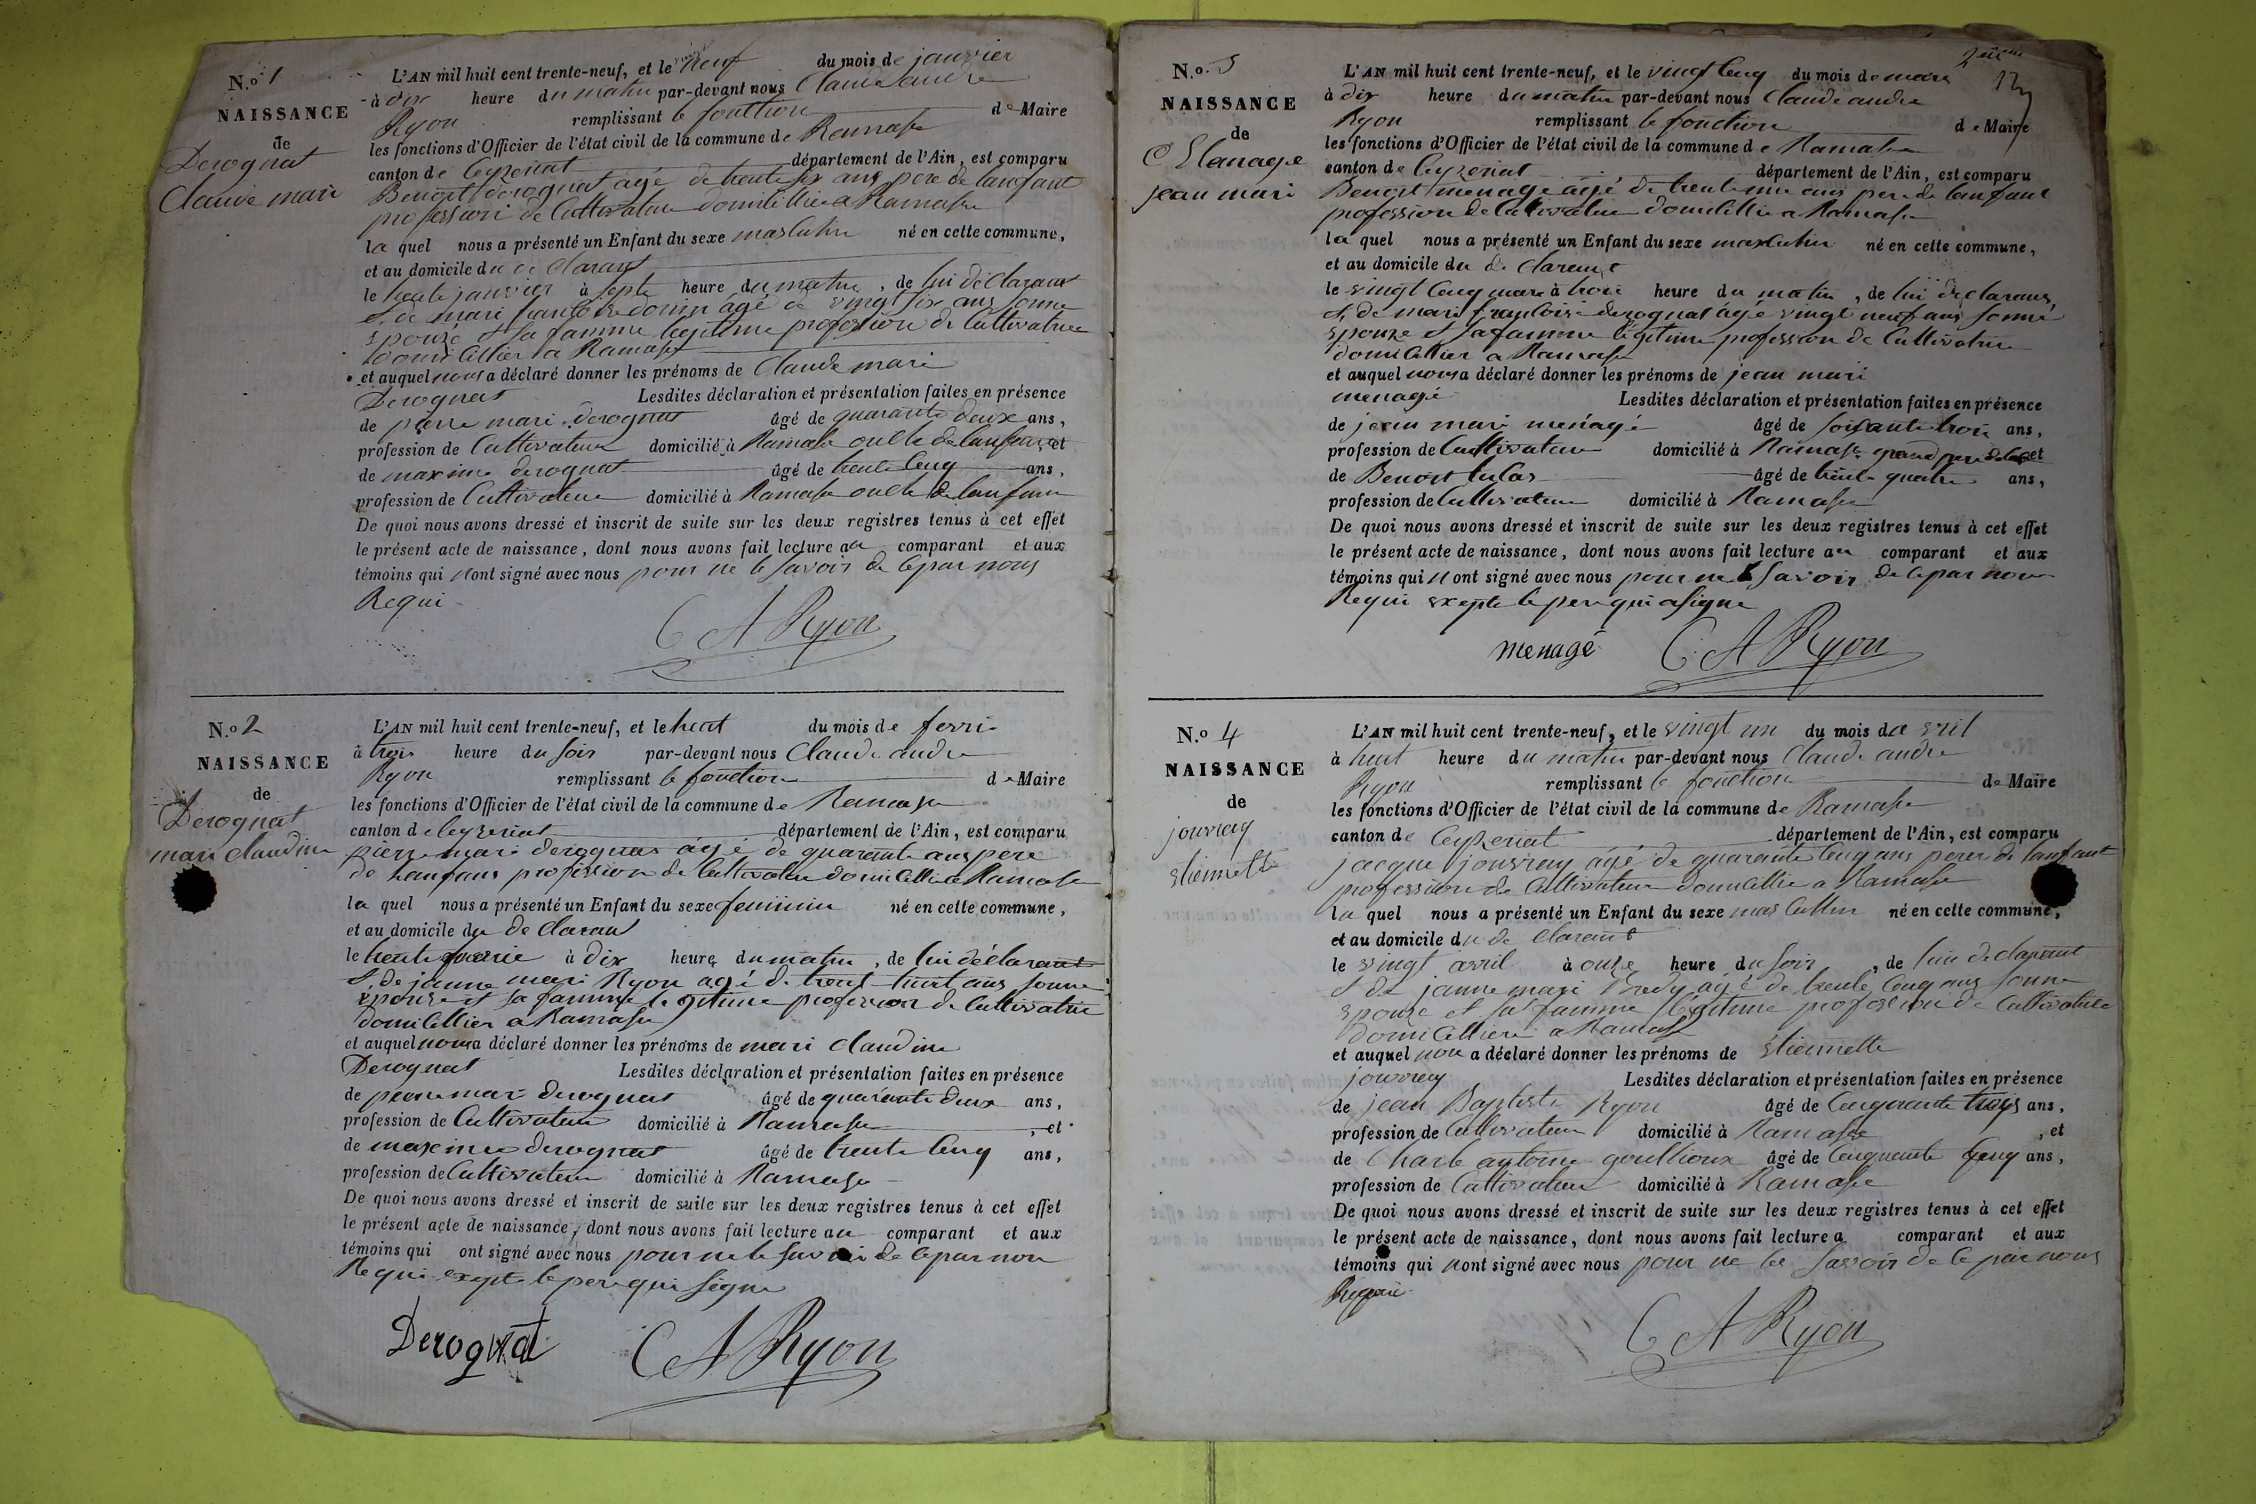 N.o 1
NAISSANCE
de
Derognat
Claude mari
L'AN mil huit cent trente-neuf, et le neuf du mois de janvier
à dix heure du matin par-devant nous Claude andre
Ryon remplissant le fonction de Maire
les fonctions d'Officier de l'état civil de la commune de Ramasse
canton de Ceyzeriat département de l'Ain, est comparu
Benoit derognat agé de trente six ans pere de lanfant
profession de Cultivateur domicillier a Ramasse
la quel nous a présenté un Enfant du sexe masculin né en cette commune,
et au domicile du de clarant
le janvier à septe heure du matin, de lui déclarant
et de mari agé de vingt six ans sonne
epouze et sa famme legitime profession de Cultivatrice
domicillier a Ramasse
et auquel nous a déclaré donner les prénoms de Claude mari
Derognat Lesdites déclaration et présentation faites en présence
de pierre mari derognat âgé de quarante deux ans,
profession de Cultivateur domicilié à Ramasse oncle de lanfant et
de maxime derognat âgé de trente cenq ans,
profession de Cultivateur domicilié à Ramasse oncle de lanfant
De quoi nous avons dressé et inscrit de suite sur les deux registres tenus à cet effet
le présent acte de naissance, dont nous avons fait lecture au comparant et aux
témoins qui nont signé avec nous pour ne le savoir de cepar nous
Requi
C A Ryon
N.o 2
NAISSANCE
de
Derognat
mari claudine
L'AN mil huit cent trente-neuf, et le huit du mois de fevri
à trois heure du soir par-devant nous Claude andre
Ryon remplissant le fonction de Maire
les fonctions d'Officier de l'état civil de la commune de Ramasse
canton de Ceyzeriat département de l'Ain, est comparu
pierre mari derognat agé de quarante ans pere
de lanfant profession de Cultivateur domicillier a Ramasse
la quel nous a présenté un Enfant du sexe feminin né en cette commune,
et au domicile du de clarant
le à dix heure du matin, de lui déclarant
et de janne mari Ryon agé de trent huit ans sonne
epouze et sa famme legitime profession de Cultivatrice
domicillier a Ramasse
et auquel nous a déclaré donner les prénoms de mari claudine
Derognat Lesdites déclaration et présentation faites en présence
de pierre mari derognat âgé de quarante deux ans,
profession de Cultivateur domicilié à Ramasse, et
de maxime derognat âgé de trente cenq ans,
profession de Cultivateur domicilié à Ramasse
De quoi nous avons dressé et inscrit de suite sur les deux registres tenus à cet effet
le présent acte de naissance, dont nous avons fait lecture au comparant et aux
témoins qui ont signé avec nous pour ne le savoir de cepar nou
Requi exepte le pere qui signe
Derognat C A Ryon
N.o 3
NAISSANCE
de
jean mari
L'AN mil huit cent trente-neuf, et le vingt cenq du mois de mars
à dix heure du matin par-devant nous Claude andre
Ryon remplissant le fonction de Maire
les fonctions d'Officier de l'état civil de la commune de Ramasse
canton de Ceyzeriat département de l'Ain, est comparu
Benoit menage agé de trente ans pere de lanfant
profession de Cultivateur domicillie a Ramasse
la quel nous a présenté un Enfant du sexe masculin né en cette commune,
et au domicile du de clarant
le vingt cenq mars à trois heure du matin, de lui declarant
et de mari francoise derognat agé vingt neuf ans sonne
epouze et sa famme legitime profession de Cultivatrice
domicillier a Ramasse
et auquel nous a déclaré donner les prénoms de jean mari
menage Lesdites déclaration et présentation faites en présence
de jean mari menage âgé de soixante trois ans,
profession de Cultivateur domicilié à Ramasse grand pere et
de Benoit âgé de trente quatre ans,
profession de Cultivateur domicilié à Ramasse
De quoi nous avons dressé et inscrit de suite sur les deux registres tenus à cet effet
le présent acte de naissance, dont nous avons fait lecture au comparant et aux
témoins qui nont signé avec nous pour ne le savoir de cepar nous
Requi exepte le pere qui a signe
menagé C. A Ryon
N.o 4
NAISSANCE
de
jouvray
etiennette
L'AN mil huit cent trente-neuf, et le vingt un du mois da vril
à huit heure du matin par-devant nous Claude andre
Ryon remplissant le fonction de Maire
les fonctions d'Officier de l'état civil de la commune de Ramasse
canton de Ceyzeriat département de l'Ain, est comparu
jacque jouvray agé de quarante cenq ans perer de lanfant
profession de Cultivateur domicillie a Ramasse
la quel nous a présenté un Enfant du sexe mas cullin né en cette commune,
et au domicile du de clarant
le vingt avril à onze heure du soir, de lui de clarant
et de janne mari agé de trente cenq ans sonne
epouze et sa famme légitime profession de Cultivatrice
domicilliere a Ramasse
et auquel nou a déclaré donner les prénoms de Etiennette
jouvray Lesdites déclaration et présentation faites en présence
de jean Baptiste Ryon âgé de cenquante trois ans,
profession de Cultivateur domicilié à Ramasse, et
de Charle antoine goullioux âgé de cenquante cenq ans,
profession de Cultivateur domicilié à Ramasse
De quoi nous avons dressé et inscrit de suite sur les deux registres tenus à cet effet
le présent acte de naissance, dont nous avons fait lecture a comparant et aux
témoins qui nont signé avec nous pour ne le savoir de ce par nous
Requi
C A Ryon